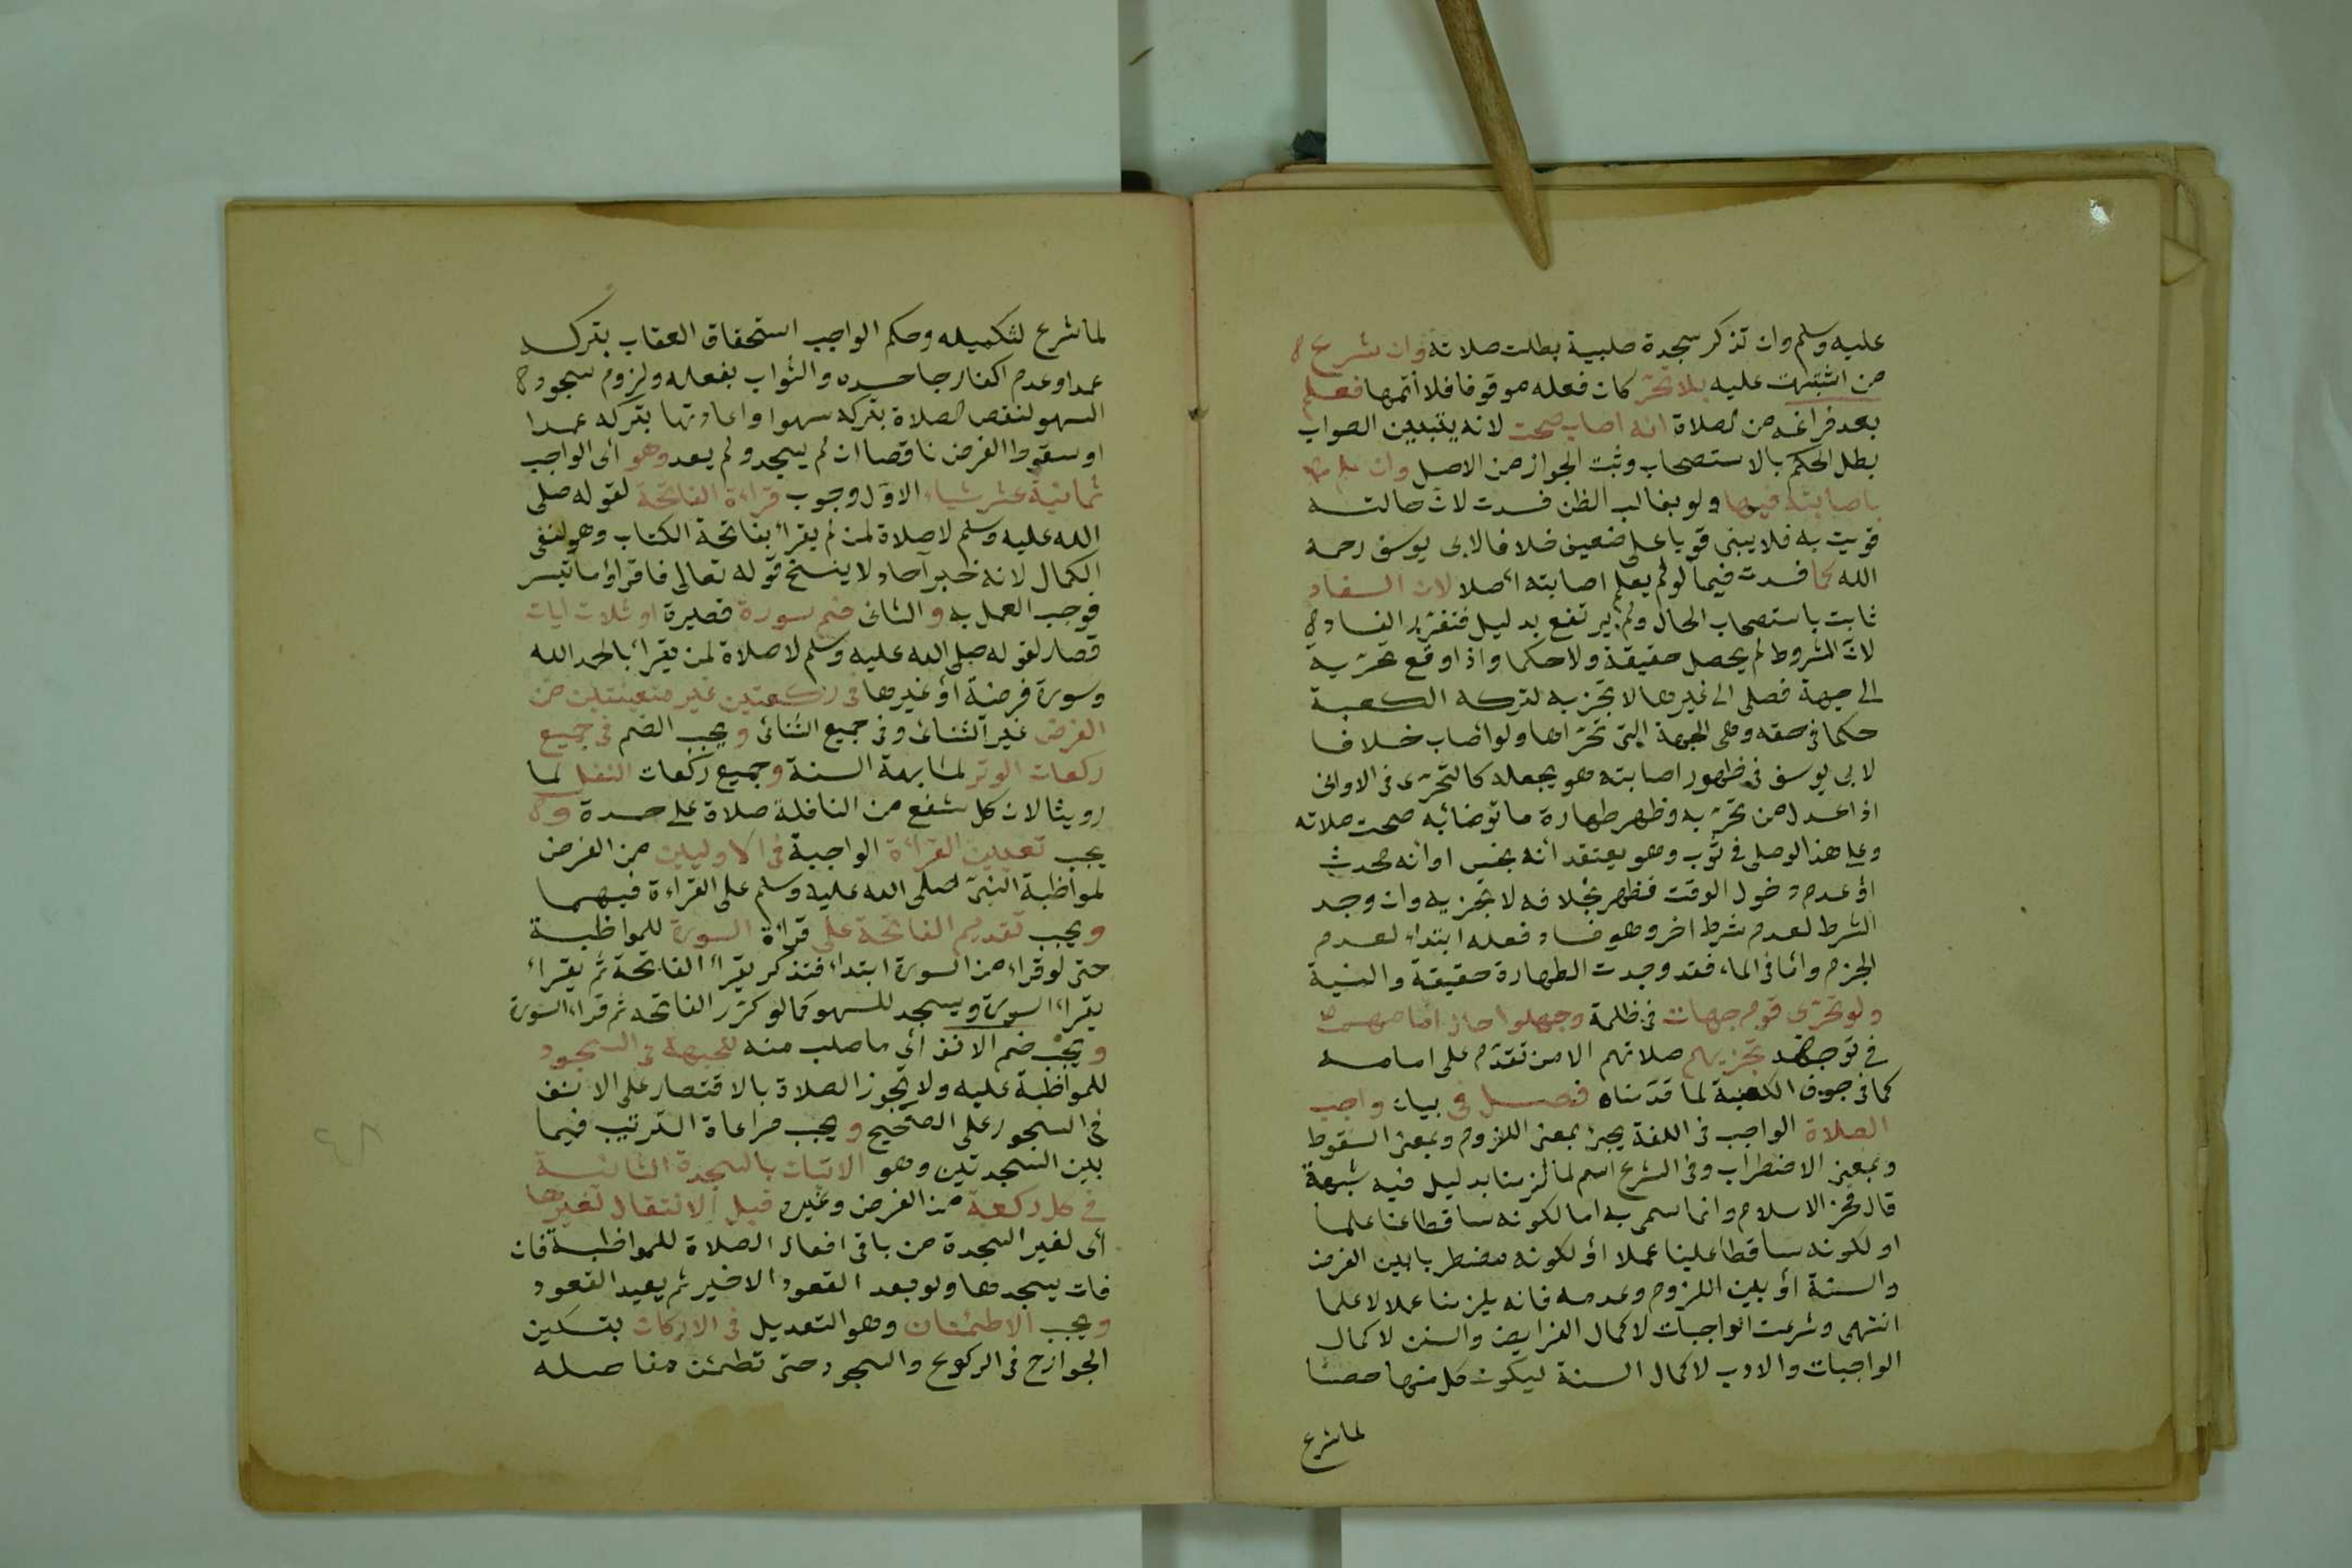 عليه وسلم وان تذكر سجدة صلبية بطلت صلاته وان شرع
من اشتبهت عليه بلا تحر كان فعله موقوفا فلا أتمها فعلم
بعد فراغه من الصلاة انه اصاب صحت لانه يتبين الصواب
بطل الحكم بالاستصحاب وثبت الجواز من الاصل وان علم
باصابته فيها ولو بغالب الظن فسدت لان حالته
قويت به فلا يبنى قويا على ضعيف خلافا لابى يوسف رحمه
الله كما فسدت فيما لو لم يعلم اصابته أصلا لان الفساد
ثابت باستصحاب الحال ولم يرتفع بدليل فتقرر الفساد
لان المشروط لم يحصل حقيقة ولا حكما واذا وقع تحريه
الى جهة فصلى الى غيرها لا تجزيه لتركه الكعبة
حكما فى حقه وهى الجهة التى تحراها ولو أصاب خلافا
لابى يوسف فى ظهور اصابته هو يجعله كالتحرى فى الاوانى
اذا عدل من تحريه وظهر طهارة ما توضأ به صحت صلاته
وعلى هذا لو صلى فى ثوب وهو يعتقد أنه نجس او أنه محدث
أو عدم دخول الوقت فظهر بخلافه لا تجزيه وان وجد
الشرط لعدم شرط اخر وهو فساد فعله ابتداء لعدم
الجزم وأما فى الماء فقد وجدت الطهارة حقيقة والنية
ولو تحرى قوم جهات فى ظلمة وجهلوا حال امامهم
فى توجهه تجزيهم صلاتهم الا من تقدم على امامه
كما فى جوف الكعبة لما قدمناه فصل فى بيان واجب
الصلاة الواجب فى اللغة يجئ بمعنى اللزوم وبمعنى السقوط
وبمعنى الاضطراب وفى الشرع اسم لما لزمنا بدليل فيه شبهة
قال فخر الاسلام وانما سمى به اما لكونه ساقطا عنا علما
او لكونه ساقطا علينا عملا أو لكونه مضطربا بين الفرض
والسنة أو بين اللزوم وعدمه فانه يلزمنا عملا لا علما
انتهى وشرعت الواجبات لاكمال الفرايض والسنن لاكمال
الواجبات والادب لاكمال السنة ليكون كل منها حصنا
لما شرع
لما شرع لتكميله وحكم الواجب استحقاق العقاب بتركه
عمدا وعدم اكفار جاحده والثواب بفعله ولزوم سجود
السهو لنقص الصلاة بتركه سهوا واعادتها بتركه عمدا
او سقوط الفرض ناقصا ان لم يسجد ولم يعد وهو أى الواجب
ثمانية عشر شياء الاول وجوب قراءة الفاتحة لقوله صلى
الله عليه وسلم لا صلاة لمن لم يقرأ بفاتحة الكتاب وهو لنفى
الكمال لانه خبر آحاد لا ينسخ قوله تعالى فاقراؤا ما تيسر
فوجب العمل به والثانى ضم سورة قصيرة او ثلاث ايات
قصار لقوله صلى الله عليه وسلم لا صلاة لمن يقرأ بالحمد الله
وسورة فريضة أو غيرها فى ركعتين غير متعينتين من
الفرض غير الثنائى وفى جميع الثنائى ويجب الضم فى جميع
ركعات الوتر لمشابهة السنة وجميع ركعات النفل لما
روينا لان كل شفع من النافلة صلاة على حدة و
يجب تعيين القرأة الواجبة فى الاوليين من الفرض
لمواظبة النبى صلى الله عليه وسلم على القراءة فيهما
ويجب تقديم الفاتحة على قرأة السورة للمواظبة
حتى لو قراء من السورة ابتداء فتذكر يقرأ الفاتحة ثم يقراء
يقراء السورة ويسجد للسهو كما لو كرر الفاتحه ثم قراء السورة
ويجب ضم الانف أى ما صلب منه للجبهة فى السجود
للمواظبة عليه ولا تجوز الصلاة بالاقتصار على الانف
فى السجود على الصحيح ويجب مراعاة الترتيب فيما
بين السجدتين وهو الاتيان بالسجدة الثانية
فى كل ركعة من الفرض وغيره قبل الانتقال لغيرها
أى لغير السجدة من باقى افعال الصلاة للمواظبة فان
فات يسجدها ولو بعد القعود الاخير ثم يعيد القعود
ويجب الاطمئنان وهو التعديل فى الاركان بتسكين
الجوارح فى الركوع والسجود حتى تطمئن مفاصله